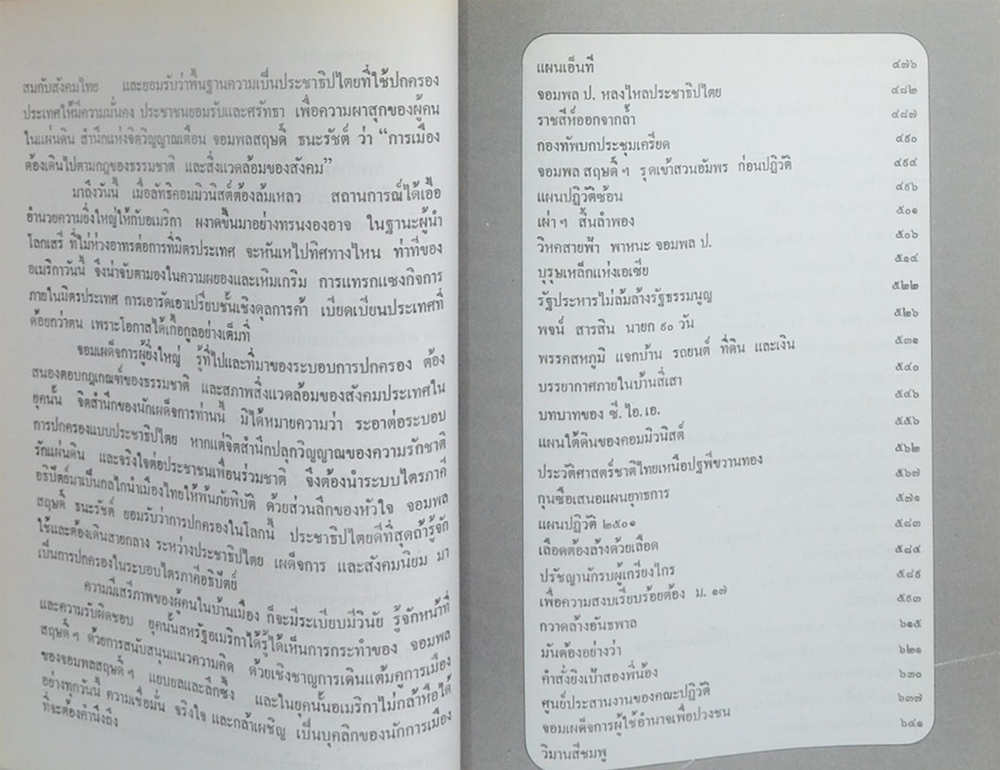 สมกับสังคมไทย และยอมรับว่าพื้นฐานความเป็นประชาธิปไตยที่ใช้ปกครอง
ประเทศให้มีความมั่นคง ประชาชนยอมรับและศรัทธา เพื่อความผาสุกของผู้คน
ในแผ่นดิน สำนึกแห่งจิตวิญญาณเตือน จอมพลสฤษดิ์ ธนะรัชต์ ว่า “การเมือง
ต้องเดินไปตามกฎของธรรมชาติ และสิ่งแวดล้อมของสังคม”
มาถึงวันนี้ เมื่อลัทธิคอมมิวนิสต์ต้องล้มเหลว สถานการณ์ได้เอื้อ
อำนวยความยิ่งใหญ่ให้กับอเมริกา ผงาดขึ้นมาอย่างทรนงองอาจ ในฐานะผู้นำ
โลกเสรี ที่ไม่ห่วงอาทรต่อการที่มิตรประเทศ จะหันเหไปทิศทางไหน ท่าทีของ
อเมริกาวันนี้ จึงน่าจับตามองในความผยองและเหิมเกริม การแทรกแซงกิจการ
ภายในมิตรประเทศ การเอารัดเอาเปรียบชั้นเชิงดุลการค้า เบียดเบียนประเทศที่
ด้อยกว่าตน เพราะโอกาสได้เกื้อกูลอย่างเต็มที่
จอมเผด็จการผู้ยิ่งใหญ่ รู้ที่ไปและที่มาของระบอบการปกครอง ต้อง
สนองตอบกฎเกณฑ์ของธรรมชาติ และสภาพสิ่งแวดล้อมของสังคมประเทศใน
ยุคนั้น จิตสำนึกของนักเผด็จการท่านนี้ มิได้หมายความว่า ระอาต่อระบอบ
การปกครองแบบประชาธิปไตย หากแต่จิตสำนึกปลุกวิญญาณของความรักชาติ
รักแผ่นดิน และจริงใจต่อประชาชนเพื่อนร่วมชาติ จึงต้องนำระบบไตรภาคี
อธิปัตย์มาเป็นกลไกนำเมืองไทยให้พ้นภัยพิบัติ ด้วยส่วนลึกของหัวใจ จอมพล
สฤษดิ์ ธนะรัชต์ ยอมรับว่าการปกครองในโลกนี้ ประชาธิปไตยดีที่สุดถ้ารู้จัก
ใช้และต้องเดินสายกลาง ระหว่างประชาธิปไตย เผด็จการ และสังคมนิยม มา
เป็นการปกครองในระบอบไตรภาคีอธิปัตย์
ความมีเสรีภาพของผู้คนในบ้านเมือง ก็จะมีระเบียบมีวินัย รู้จักหน้าที่
และความรับผิดชอบ ยุคนั้นสหรัฐอเมริกาได้รู้ได้เห็นการกระทำของ จอมพล
สฤษดิ์ฯ ด้วยการสนับสนุนแนวความคิด ด้วยเชิงชาญการเดินแต้มคูการเมือง
ของจอมพลสฤษดิ์ฯ แยบยลและลึกซึ้ง และในยุคนั้นอเมริกาไม่กล้าหือได้
อย่างทุกวันนี้ ความเชื่อมั่น จริงใจ และกล้าเผชิญ เป็นบุคลิกของนักการเมือง
ที่จะต้องคำนึงถึง
แผนเอ็นที ๔๗๖
จอมพล ป. หลงไหลประชาธิปไตย ๔๘๒
ราชสีห์ออกจากถ้ำ ๔๘๗
กองทัพบกประชุมเครียด ๔๙๐
จอมพล สฤษดิ์ฯ รุดเข้าสวนอัมพร ก่อนปฏิวัติ ๔๙๔
แผนปฏิวัติซ้อน ๔๙๖
เผ่าฯ สิ้นลำพอง ๕๐๑
วิหคสายฟ้า พาหนะ จอมพล ป. ๕๐๖
บุรุษเหล็กแห่งเอเซีย ๕๑๔
รัฐประหารไม่ล้มล้างรัฐธรรมนูญ ๕๒๒
พจน์ สารสิน นายก ๙๐ วัน ๕๒๖
พรรคสหภูมิ แจกบ้าน รถยนต์ ที่ดิน และเงิน ๕๓๑
บรรยากาศภายในบ้านสี่เสา ๕๔๐
บทบาทของ ซี. ไอ. เอ. ๕๔๖
แผนใต้ดินของคอมมิวนิสต์ ๕๕๖
ประวัติศาสตร์ชาติไทยเหนือปฐพีขวานทอง ๕๖๒
กุนซือเสนอแผนยุทธการ ๕๖๗
แผนปฏิวัติ ๒๕๐๑ ๕๗๑
เลือดต้องล้างด้วยเลือด ๕๘๓
ปรัชญานักรบผู้เกรียงไกร ๕๘๔
เพื่อความสงบเรียบร้อยต้อง ม. ๑๗ ๕๘๙
กวาดล้างอันธพาล ๕๙๓
มันต้องอย่างว่า ๖๑๕
คำสั่งยิงเป้าสองพี่น้อง ๖๒๑
ศูนย์ประสานงานของคณะปฏิวัติ ๖๓๐
จอมเผด็จการผู้ใช้อำนาจเพื่อปวงชน ๖๓๗
วิมานสีชมพู ๖๔๑